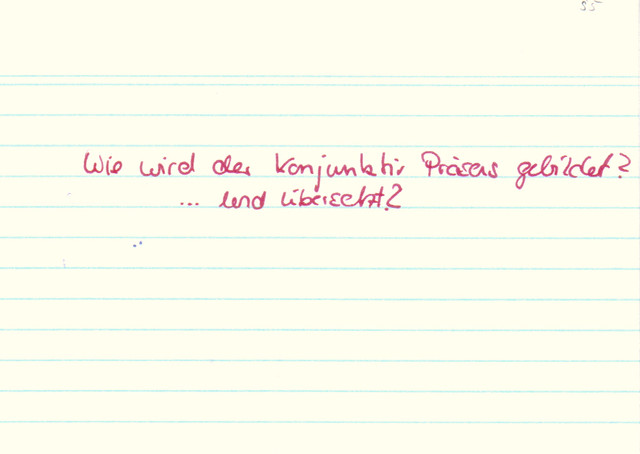 55
Wie wird der Konjunktiv Präsens gebildet?
... und übersetzt?